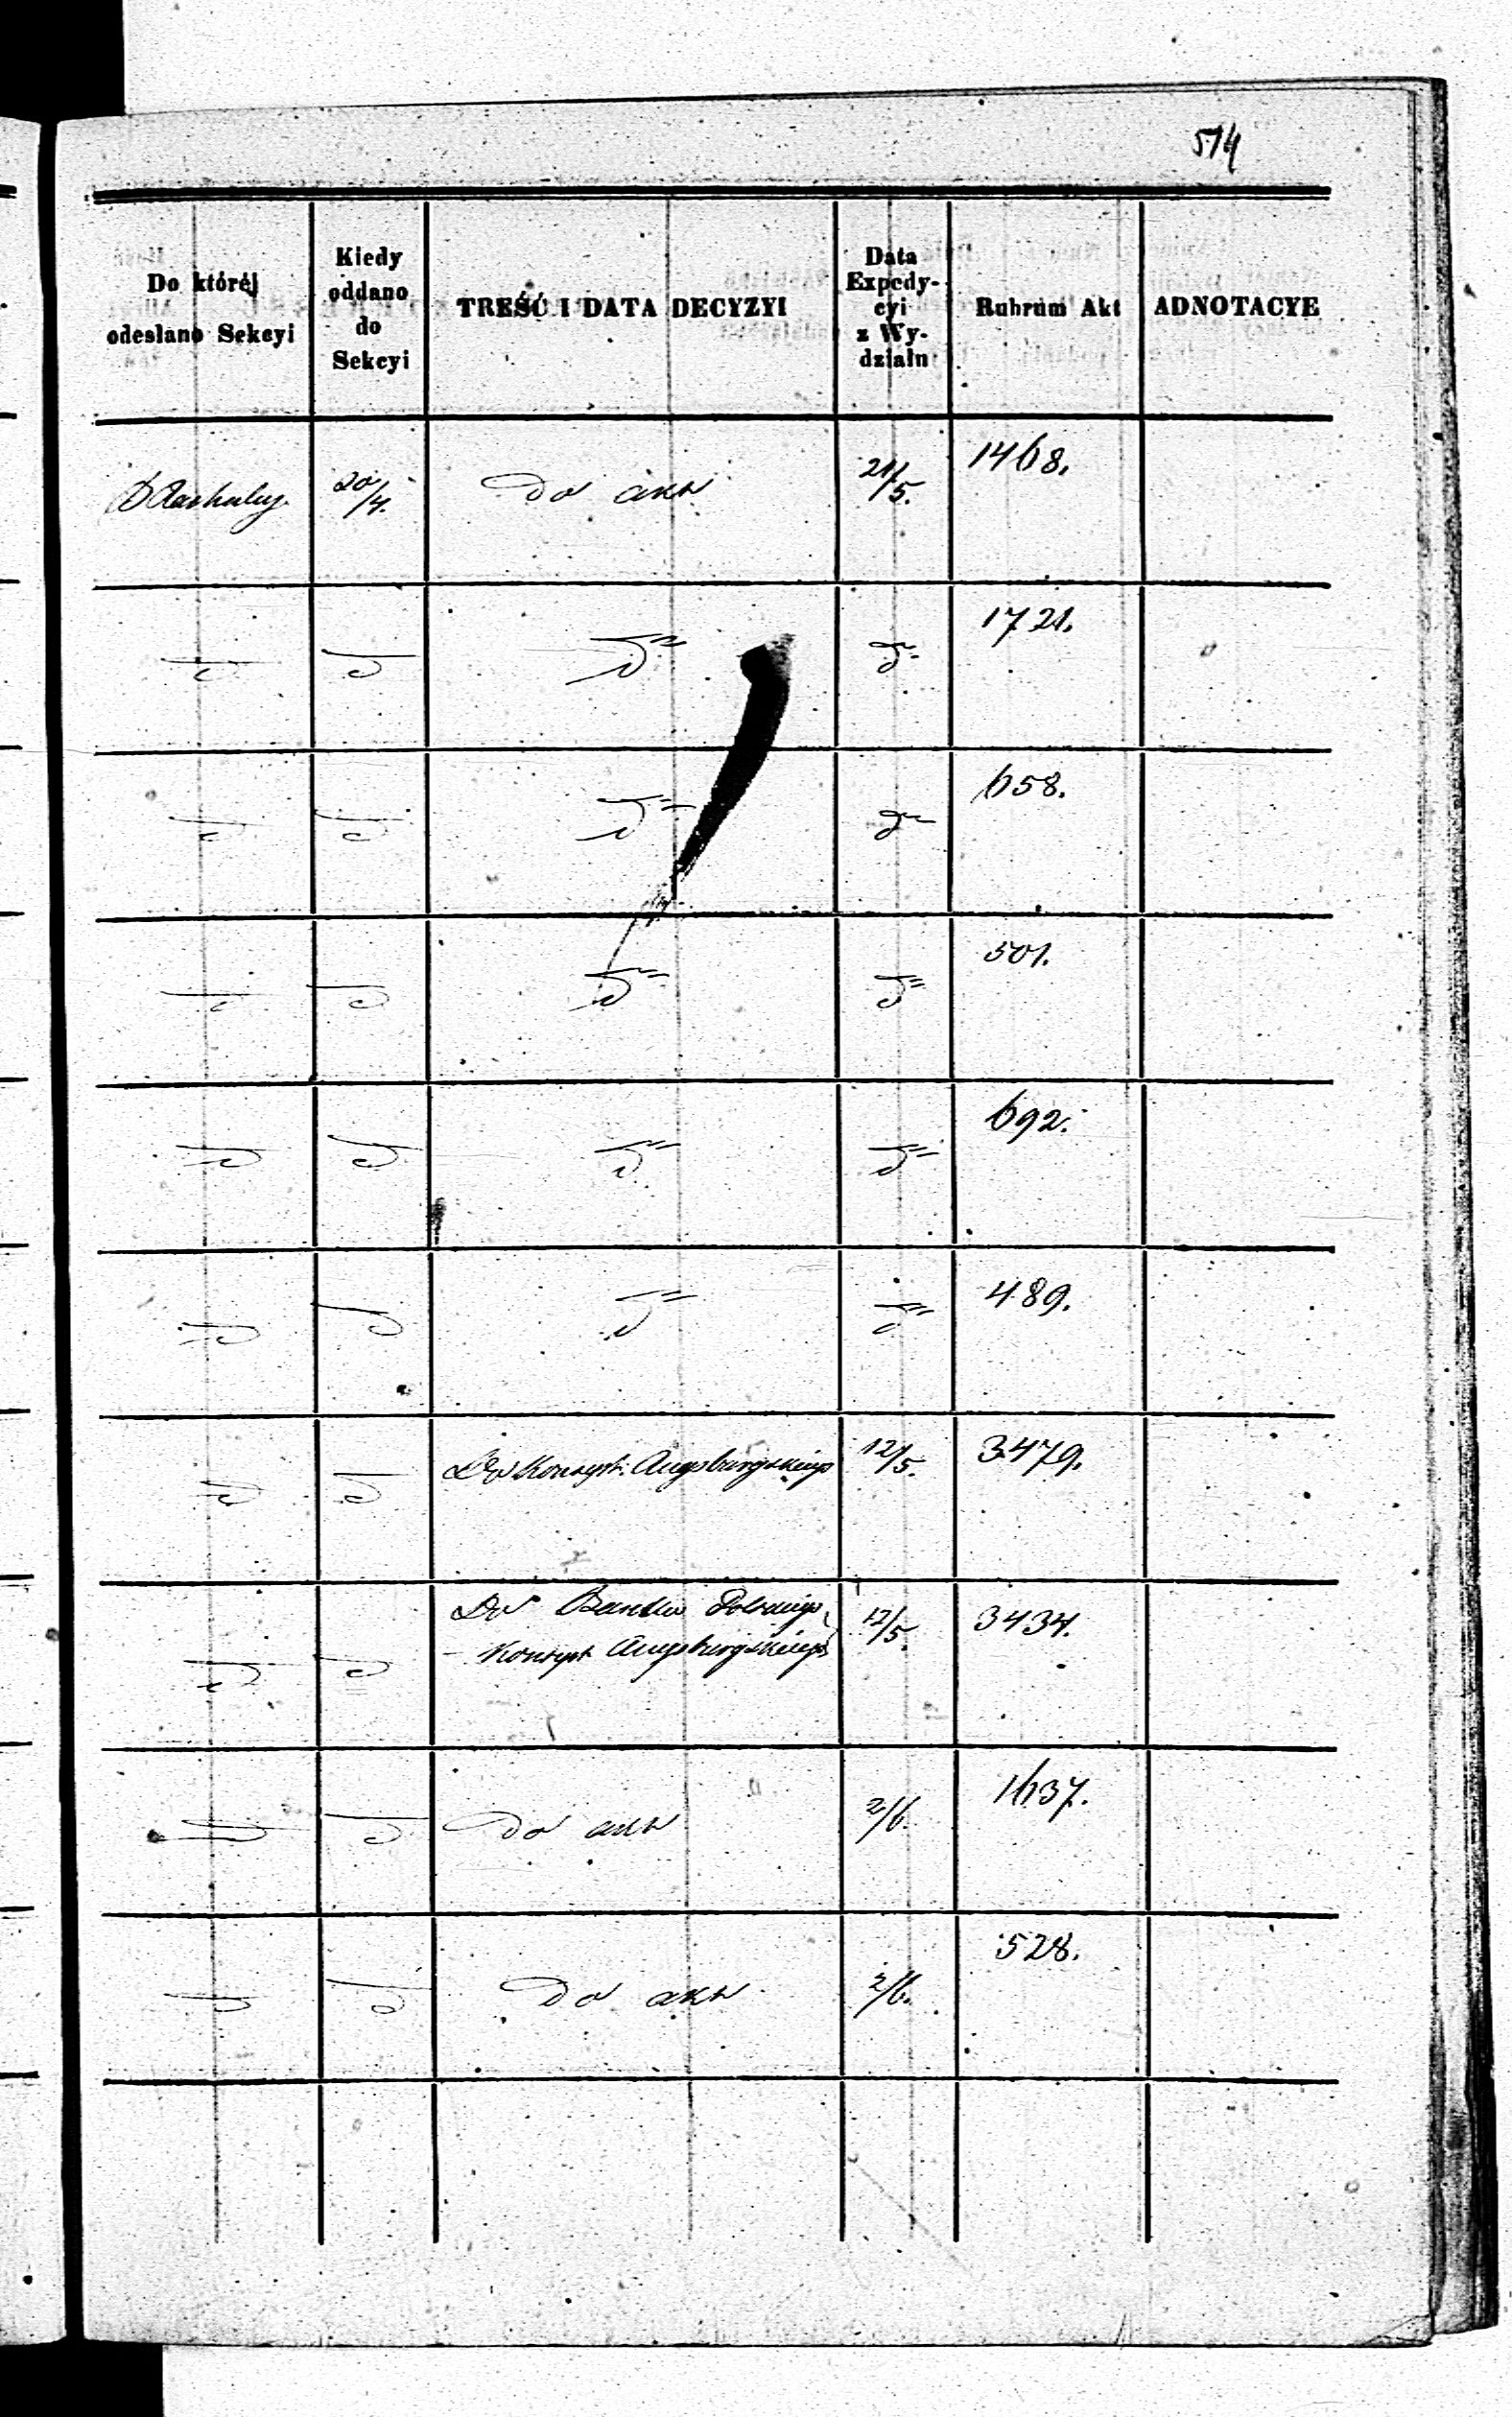 514
Do któréj
odesłano Sekcyi
Kiedy
oddano
do
Sekcyi
TREŚĆ I DATA DECYZYI
Data
Expedy-
cyi
z Wy-
działu
Rubrum Akt
ADNOTACYE
20/4. Do akt 21/5. 1468.
1721.
658.
501.
692.
489.
Do Konsyst. Augsburgskiego 12/5. 3479.
Do Banku Polskiego
- Konsyst Augsburgskiego 12/5. 3434.
Do akt 2/6. 1637.
Do akt 2/6. 528.